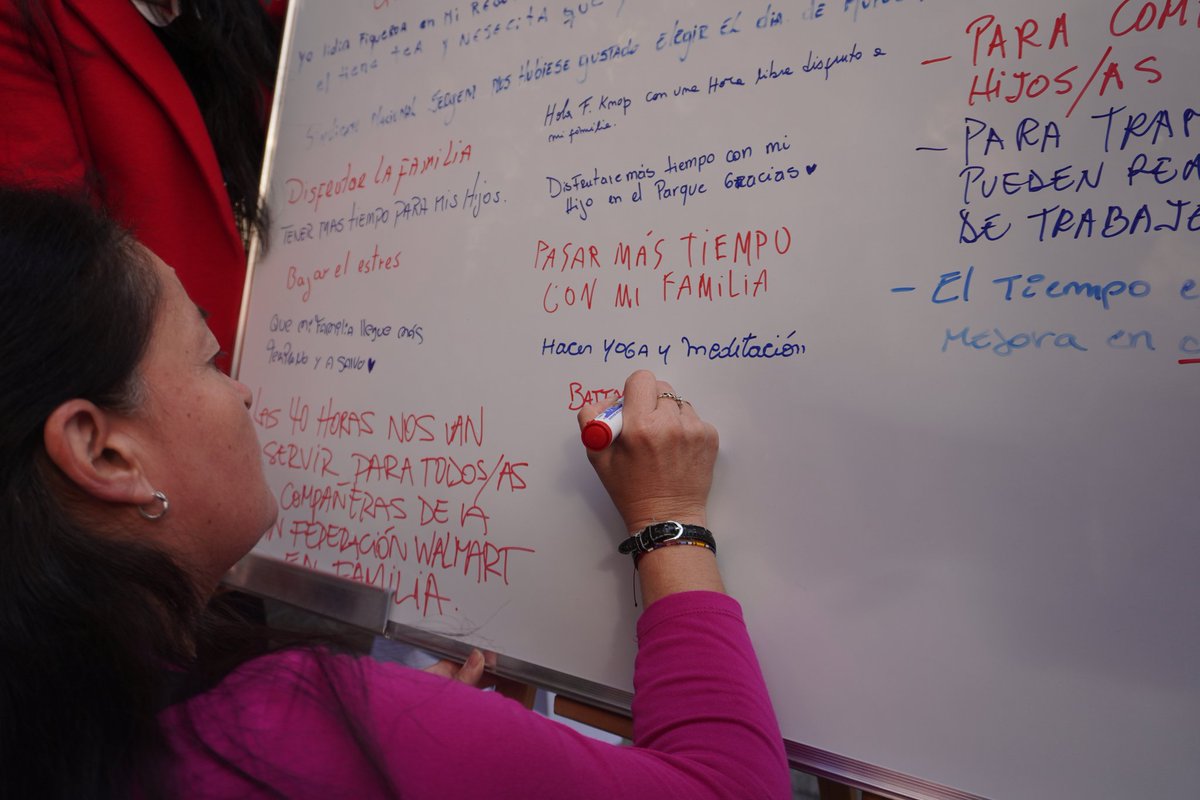 Yo lidia Figueroa en mi
el tiene tea y Nesecita que
Sindicato Nacional SERJEM nos hubiese gustado elegir el dia de
Disfrutar LA FAMILIA
TENER MAS tiempo PARA Mis Hijos.
Bajar el estres
Que mi Familia llegue más
temprano y A SALVO ♥
LAS 40 HORAS NOS VAN
SERVIR PARA TODOS/AS
COMPAÑERAS DE LA
FEDERACIÓN WALMART
EN FAMILIA.
Hola F. Knop con una Hora libre disfruto a
mi familia.
Disfrutare más tiempo con mi
Hijo en el Parque Gracias ♥
PASAR MÁS TIEMPO
CON MI FAMILIA
Hacer YOGA y Meditación
BATT
- PARA COM
HIJOS/AS
- PARA TRAM
PUEDEN REA
DE TRABAJ
- El Tiempo e
Mejora en